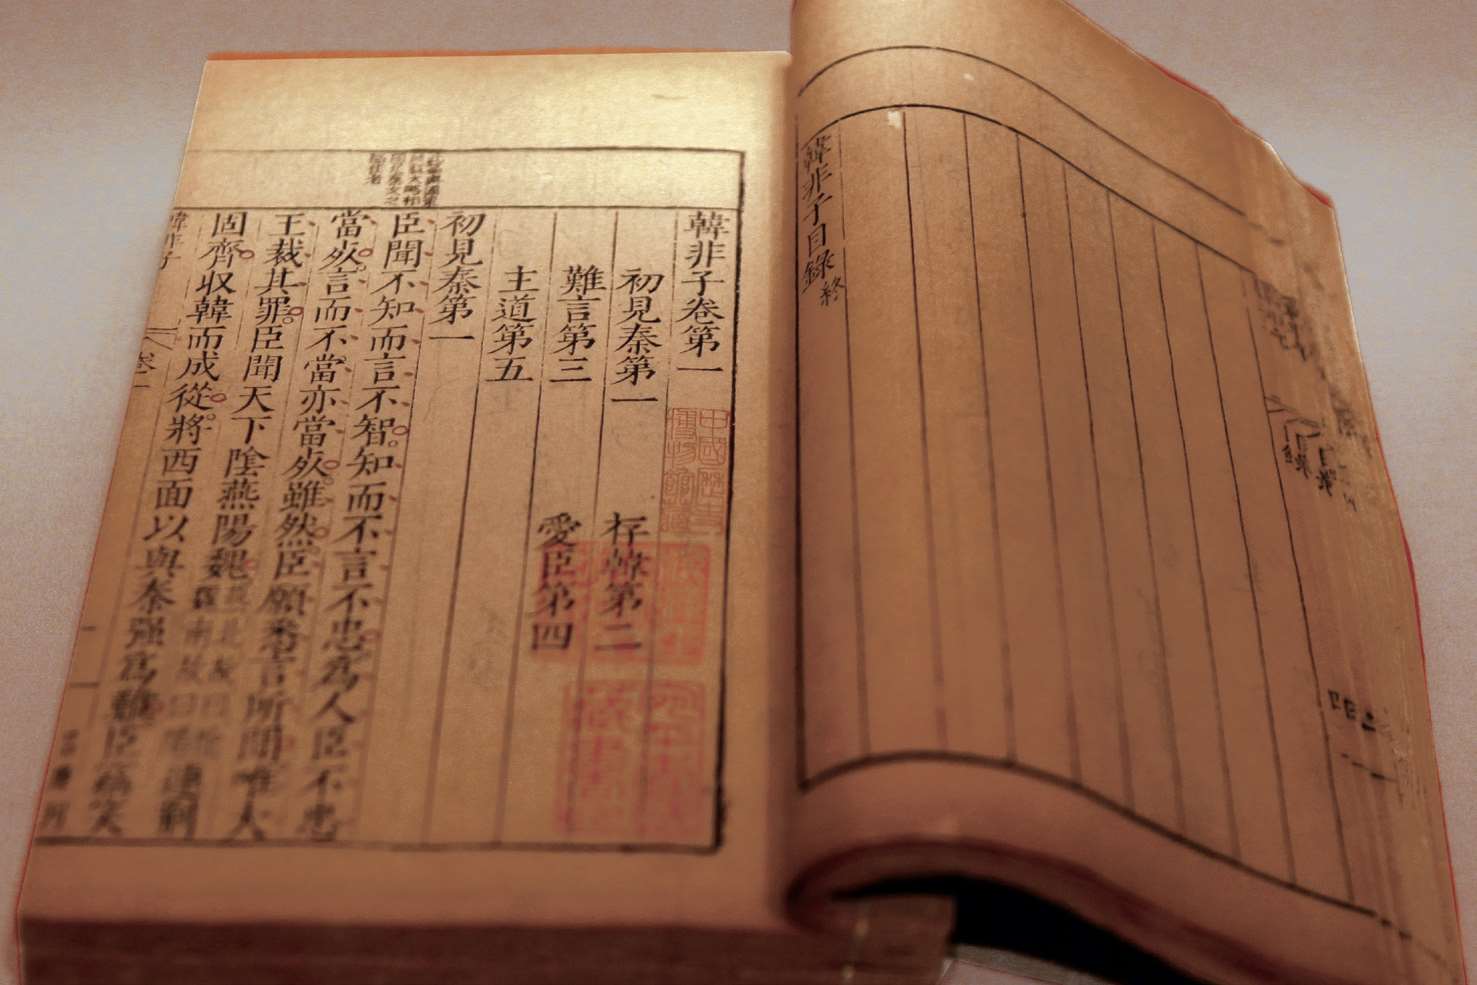 韓非子目錄終
韓非子卷第一
初見秦第一 存韓第二
難言第三 愛臣第四
主道第五
初見秦第一
臣聞不知而言不智知而不言不忠爲人臣不忠
當死言而不當亦當死雖然臣願悉言所聞唯大
王裁其罪臣聞天下陰燕陽魏燕北故曰陰魏南故曰陽連荆
固齊收韓而成從將西面以與秦强爲難臣竊笑
韓非子 卷一
中國歷史
博物館藏